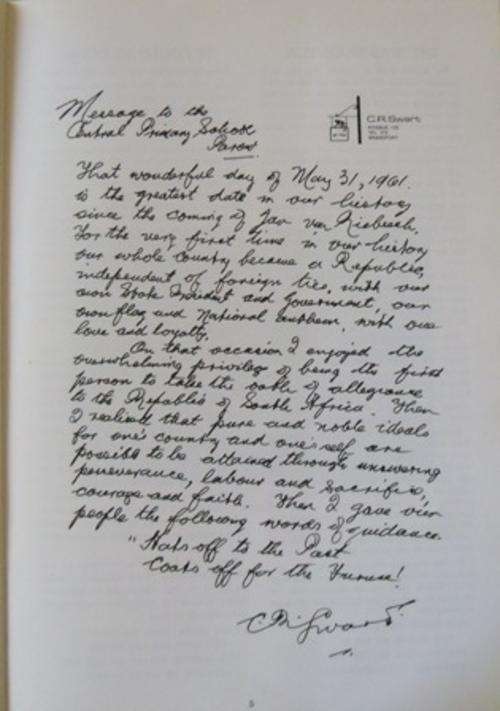 Message to the
Central Primary School
Parow.
C.R. Swart
That wonderful day of May 31, 1961.
is the greatest date in our history
since the coming of Jan van Riebeeck.
For the very first time in our history
our whole country became a Republic,
independent of foreign ties, with our
own State President and Government, our
own flag and National anthem, with one
love and loyalty.
On that occasion I enjoyed the
overwhelming privilege of being the first
person to take the oath of allegiance
to the Republic of South Africa. Then
I realised that pure and noble ideals
for one's country and one's self are
possible to be attained through unswerving
perseverance, labour and sacrifice,
courage and faith. Then I gave our
people the following words of guidance.
"Hats off to the Past
Coats off for the Future!
C.R. Swart.
5